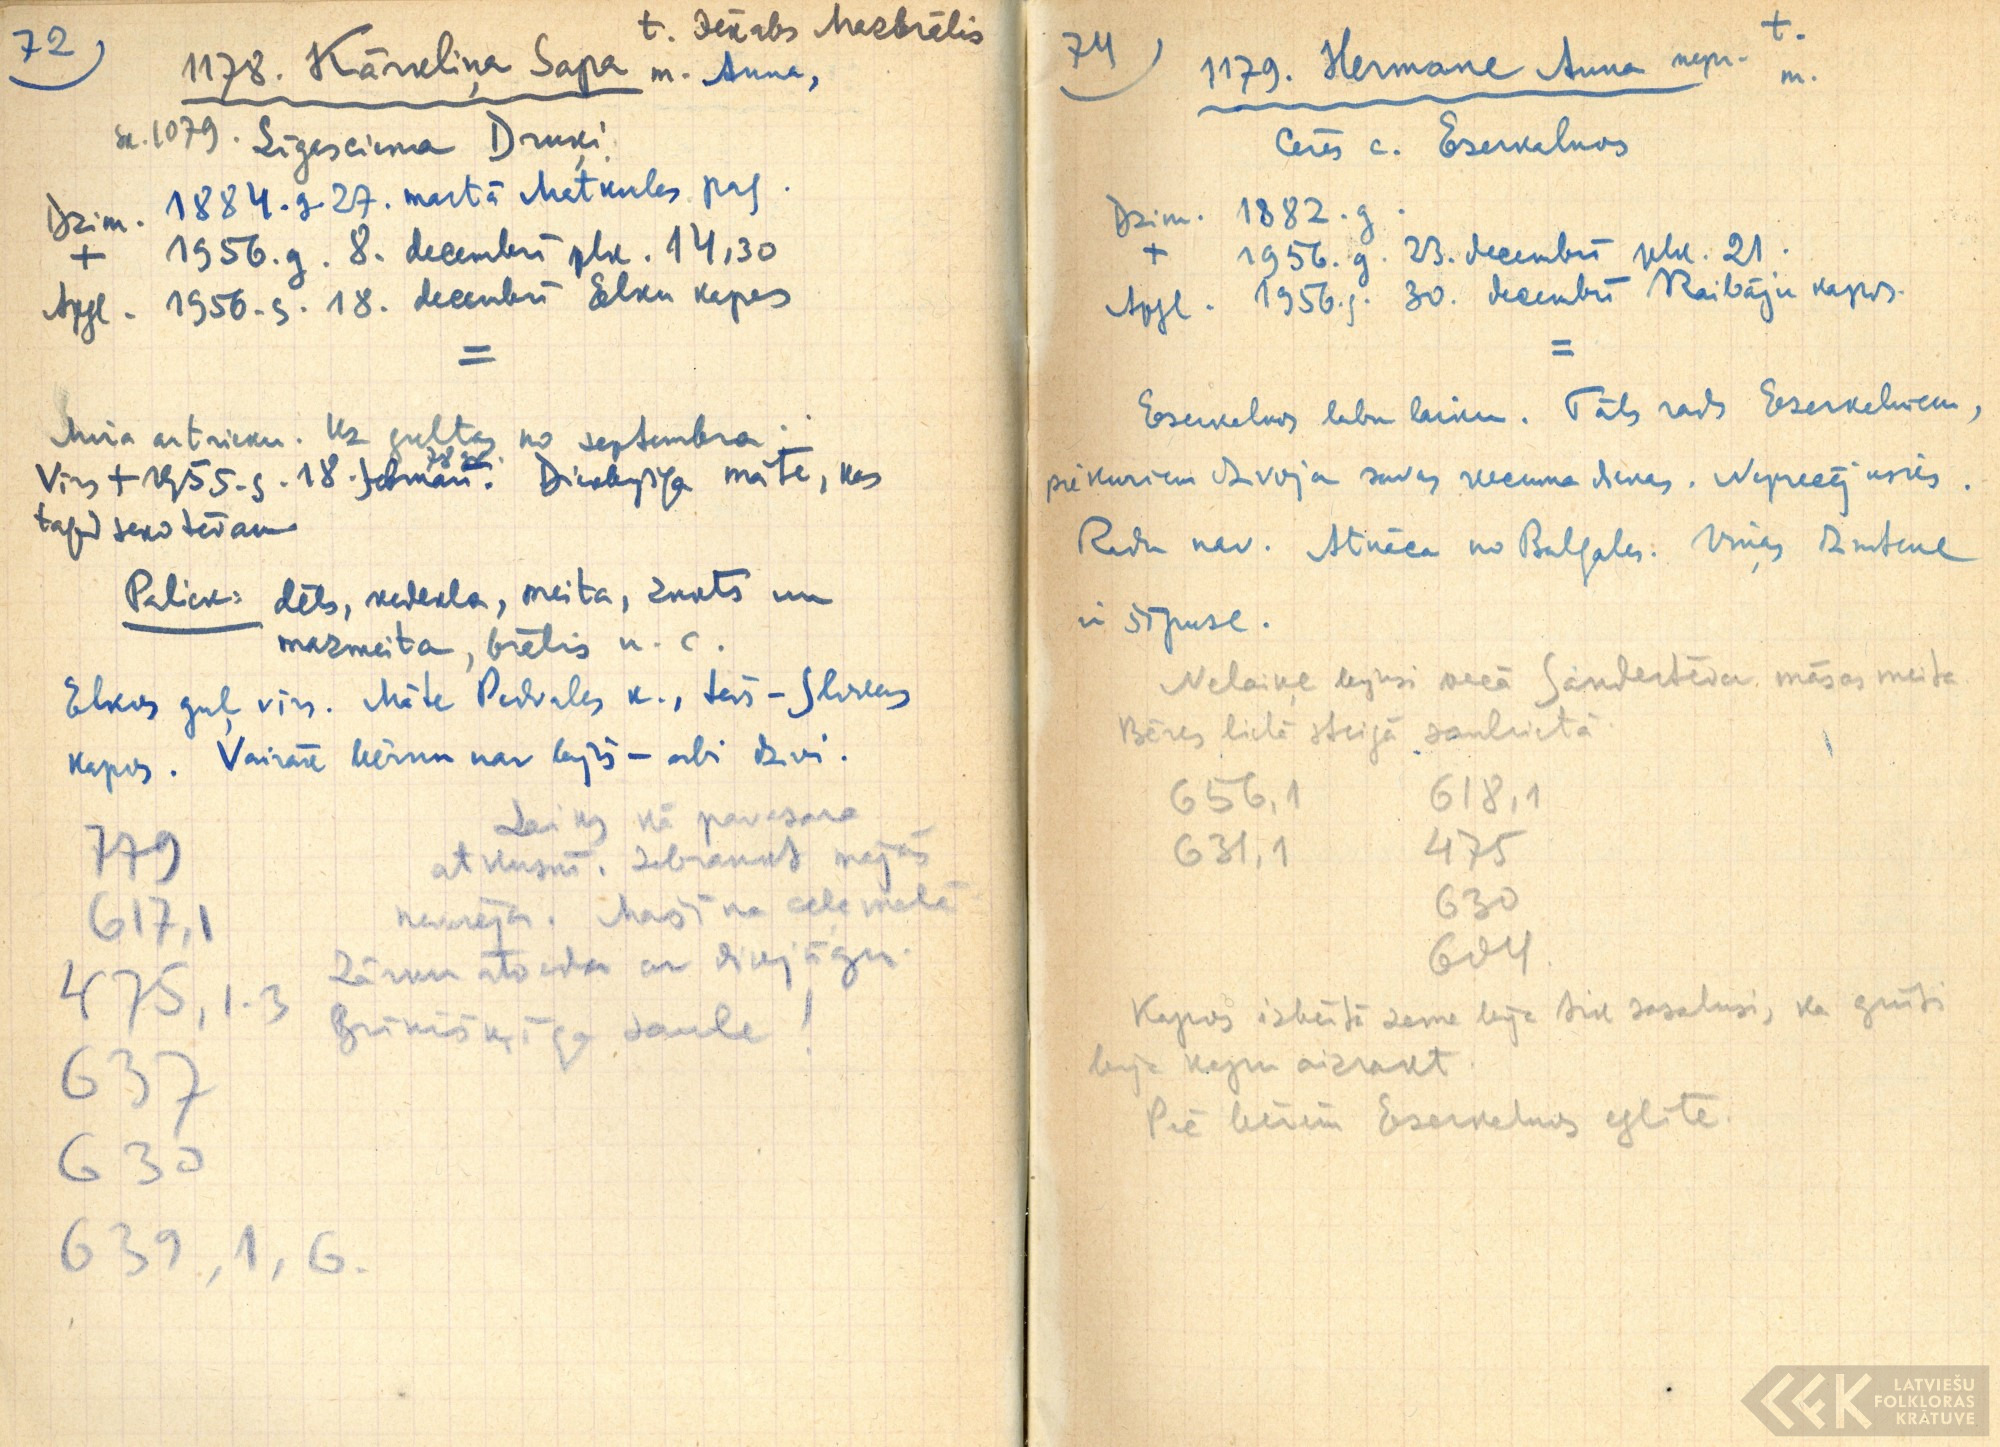 72)
t. Jēkabs Mazbrālis
1178. Kārkliņa Sapa m. Anna,
sk. 1079. Līgasciema Druķi
Dzim. 1884. g. 27. martā Matkules pag.
+ 1956. g. 8. decembrī plk. 14,30
Apgl. 1956. g. 18. decembrī Elku kapos
=
Mira ar trieku. Uz gultas no septembra.
Vīrs + 1955. g. 18. februārī. Dievbijīga māte, kas
tagad seko tēvam
Paliek: dēls, vedekla, meita, znots un
mazmeita, brālis u. c.
Elkos guļ vīrs. Māte Pedvāles k., tēvs –
kapos. Vairāk bērnu nav bijis – abi dzīvi.
779
617,1
475, 1.3
637
630
639, 1, 6.
Laiks kā pavasara
atkusnī. Iebraukt mājās
nevarēja. Mašīna ceļa malā
Zārku atveda ar divjūgu.
Brīnišķīga saule!
74)
1179. Hermane Anna nepr. t.
m.
Cērēs c. Ezerkalnos
Dzim. 1882. g.
+ 1956. g. 23. decembrī plk. 21.
Apgl. 1956. g. 30. decembrī Kaibāju kapos.
=
Ezerkalnos labu laiku. Tāls rads Ezerkalniem,
pie kuriem dzīvoja savas vecuma dienas. Neprecējusies.
Radu nav. Atnāca no Balgales. Viņas dzimtene
ir šīpuse.
Nelaiķe bijusi vecā Sandertēva māsas meita
Bēres lielā steigā saulrietā.
656,1 618,1
631,1 475
630
604.
Kapos izbērtā zeme bija tik sasalusi, ka grūti
bija kapu aizrakt.
Pie bērēm Ezerkalnos eglīte.
LATVIEŠU
FOLKLORAS
KRĀTUVE